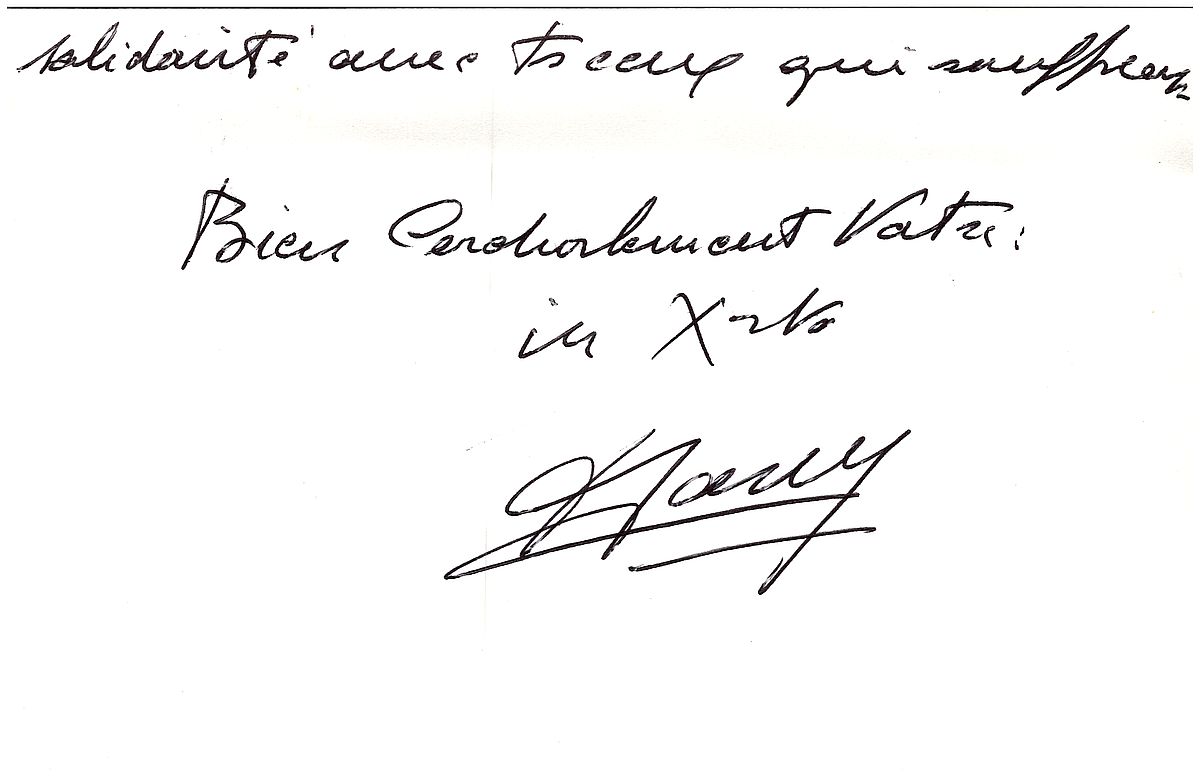 solidarité avec ts ceux qui souffrent
Bien Cordialement Vôtre.
in Xto